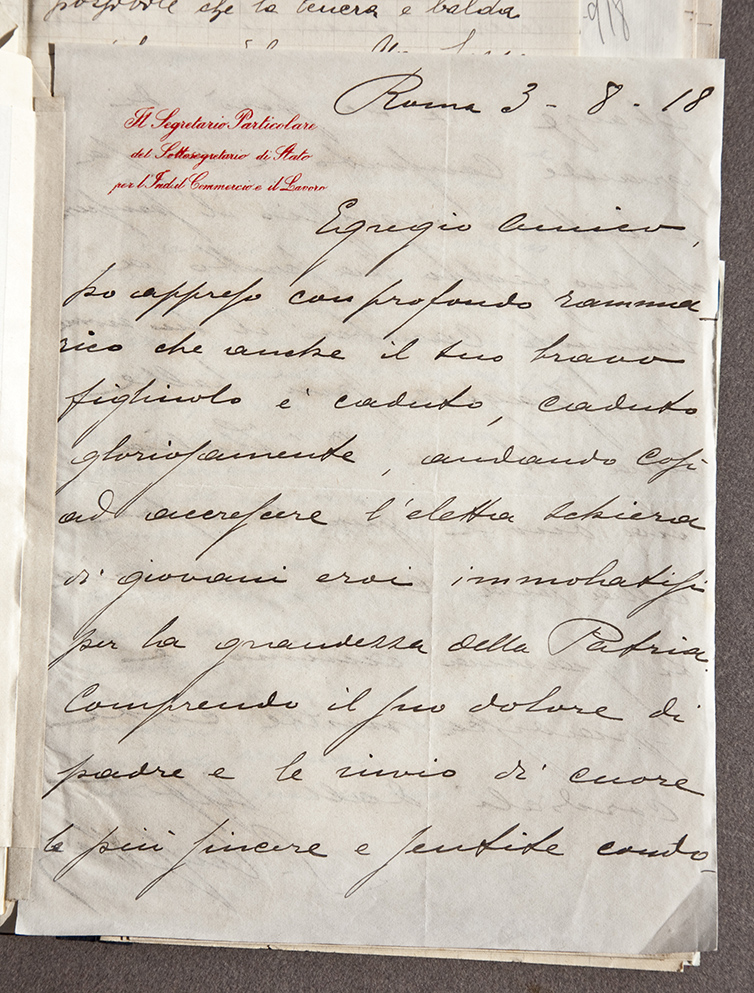 possibile che la tenera e balda
918
Roma 3 - 8 - 18
Il Segretario Particolare
del Sottosegretario di Stato
per l'Ind. il Commercio e il Lavoro
Egregio Amico,
ho appreso con profondo ramma-
rico che anche il suo bravo
figliuolo è caduto, caduto
gloriosamente, andando così
ad accrescere l'eletta schiera
di giovani eroi immolatisi
per la grandezza della Patria.
Comprendo il suo dolore di
padre e le invio di cuore
le più sincere e sentite condo-